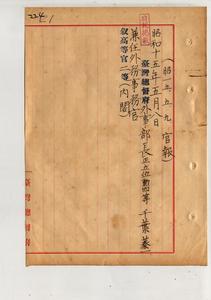 224/1
（昭一五、五、九 官報）
昭和十五年五月八日
臺灣總督府外事部長正五位勳四等 千葉蓁一
兼任外務事務官
敍高等官二等（內閣）
臺灣總督府